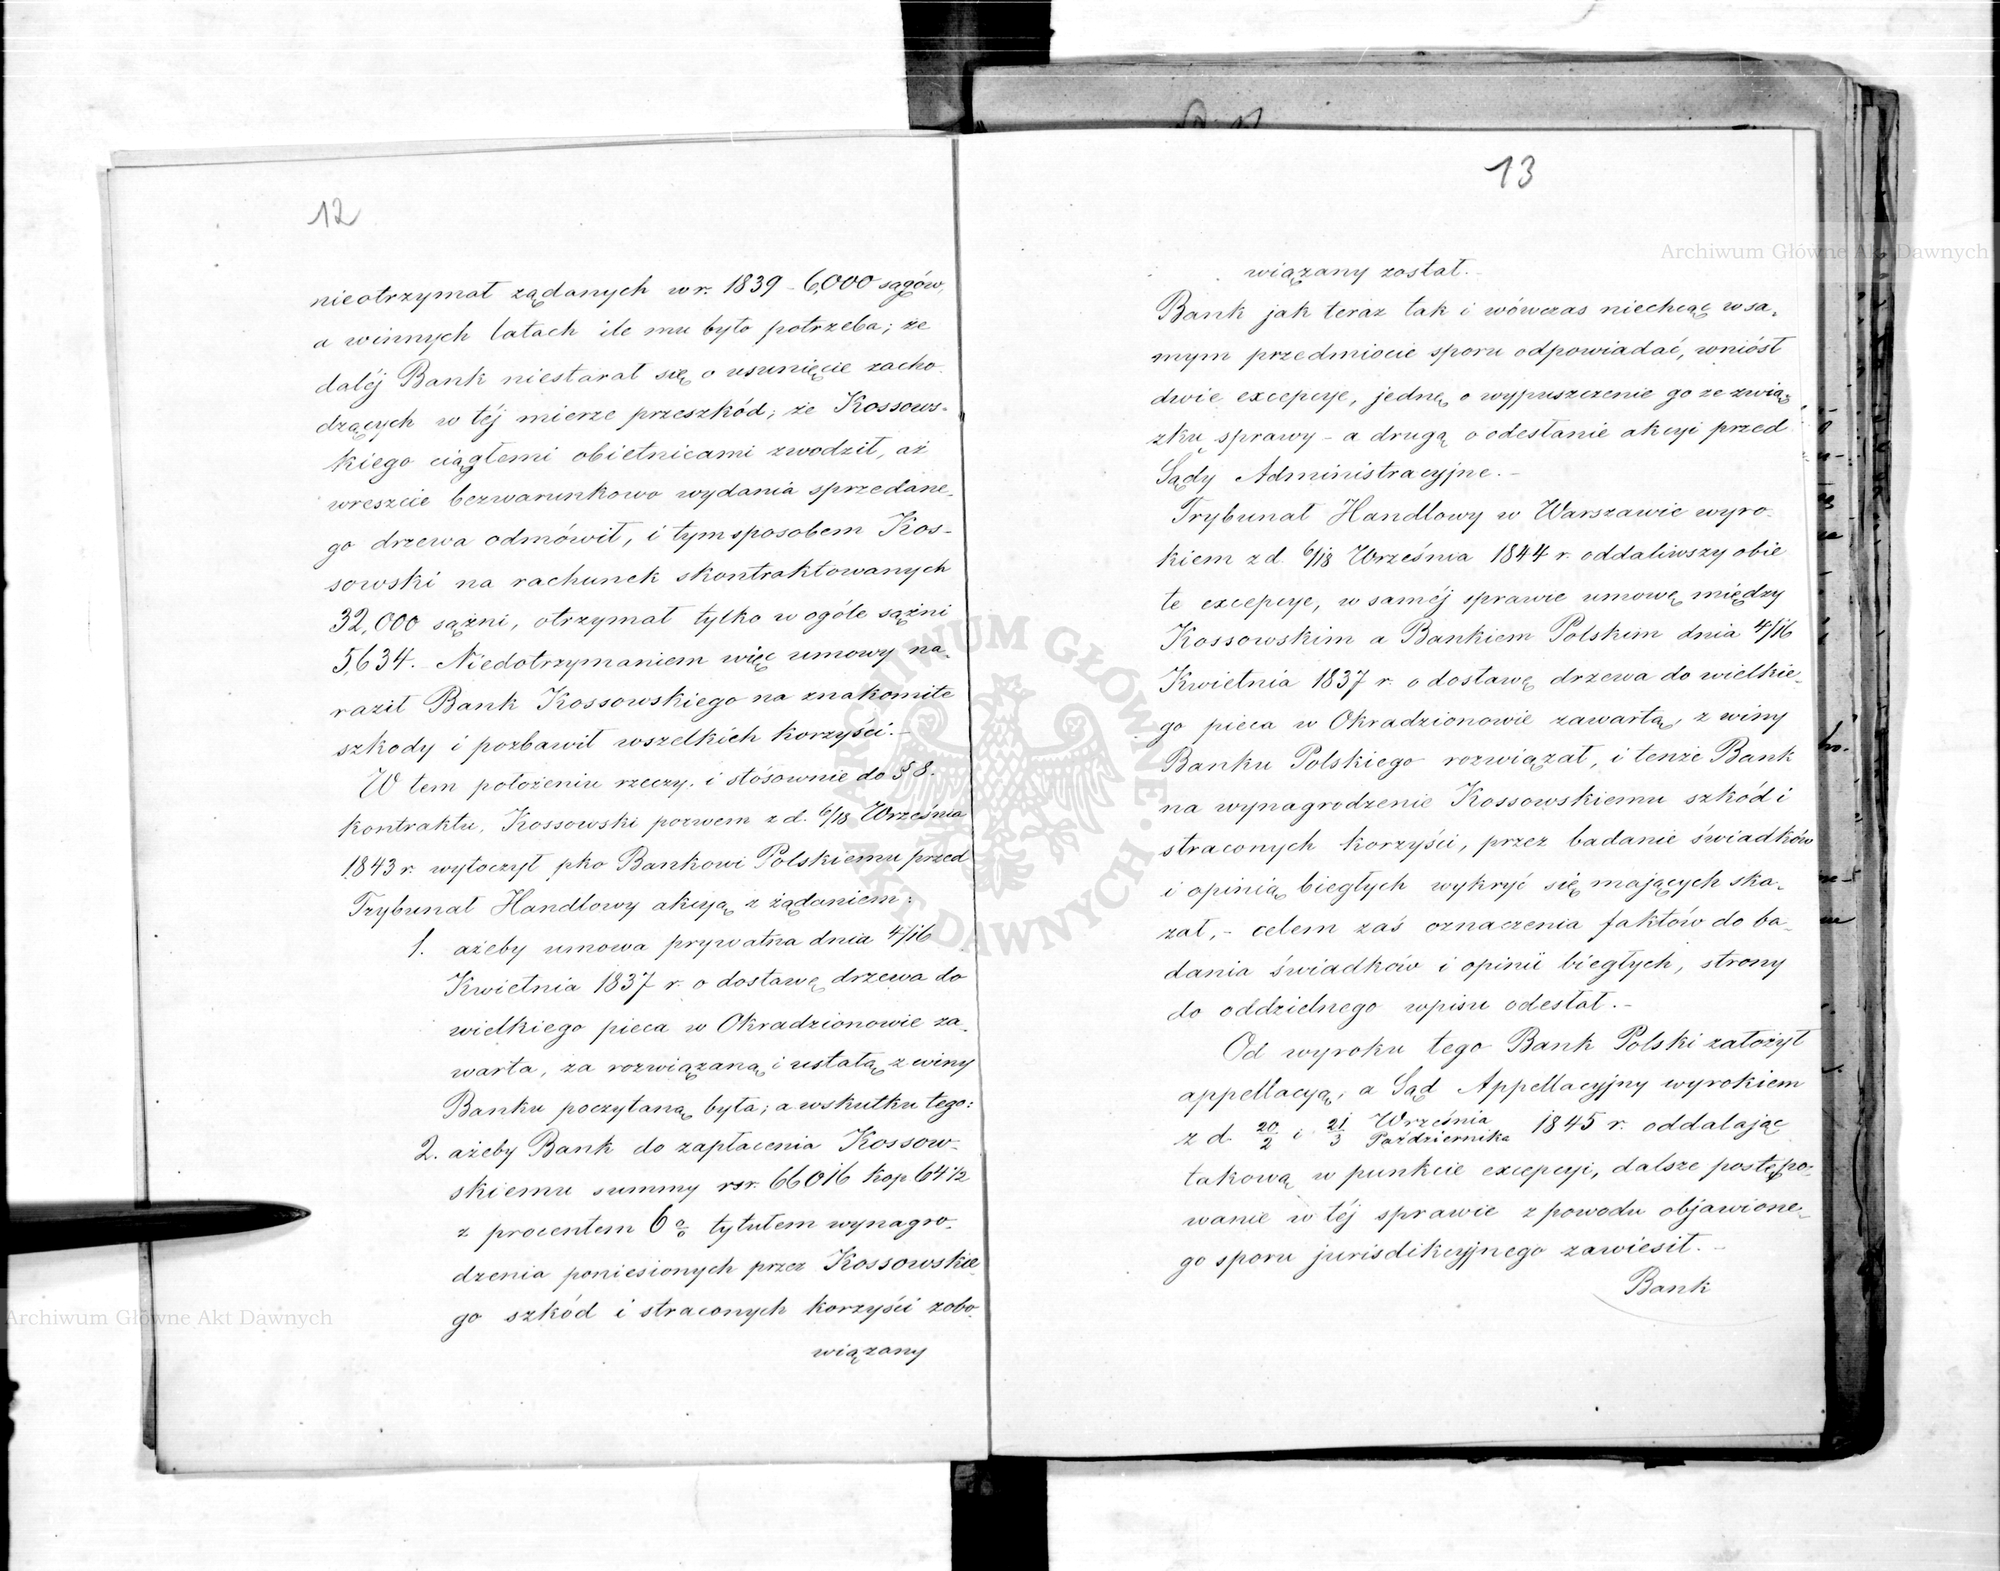 12
nieotrzymał żądanych w r. 1839 - 6,000 sągów,
a winnych latach ile mu było potrzeba; że
daléj Bank niestarał się o usunięcie zacho-
dzących w téj mierze przeszkód; że Kossows-
kiego ciągłemi obietnicami zwodził, aż
wreszcie bezwarunkowo wydania sprzedane-
go drzewa odmówił, i tym sposobem Kos-
sowski na rachunek skontraktowanych
32,000 sążni, otrzymał tylko w ogóle sążni
5,634. Niedotrzymaniem więc umowy na-
raził Bank Kossowskiego na znakomite
szkody i pozbawił wszelkich korzyści.-
W tem położeniu rzeczy. i stósownie do § 8.
kontraktu, Kossowski pozwem z d. 6/18 Września
1843 r. wytoczył pko Bankowi Polskiemu przed
Trybunał Handlowy akcyą z żądaniem:
1. ażeby umowa prywatna dnia 4/16
Kwietnia 1837 r. o dostawę drzewa do
wielkiego pieca w Okradzionowie za-
warta, za rozwiązaną i ustałą z winy
Banku poczytaną była; a wskutku tego:
2. ażeby Bank do zapłacenia Kossow-
skiemu summy rsr. 66016 kop 64 1/2
z procentem 6 % tytułem wynagro-
dzenia poniesionych przez Kossowskie-
go szkód i straconych korzyści zobo-
wiązany
13
wiązany został.-
Bank jak teraz tak i wówczas niechcąc w sa-
mym przedmiocie sporu odpowiadać, wniósł
dwie excepcye, jednę o wypuszczenie go ze zwią-
zku sprawy - a drugą o odesłanie akcyi przed
Sądy Administracyjne.-
Trybunał Handlowy w Warszawie wyro-
kiem z d. 6/18 Września 1844 r. oddaliwszy obie
te excepcye, w saméj sprawie umowę między
Kossowskim a Bankiem Polskim dnia 4/16
Kwietnia 1837 r. o dostawę drzewa do wielkie-
go pieca w Okradzionowie zawartą, z winy
Banku Polskiego rozwiązał, i tenże Bank
na wynagrodzenie Kossowskiemu szkód i
straconych korzyści, przez badanie świadków
i opinią biegłych wykryć się mających ska-
zał, - celem zaś oznaczenia faktów do ba-
dania świadków i opinii biegłych, strony
do oddzielnego wpisu odesłał.-
Od wyroku tego Bank Polski założył
appellacyą, a Sąd Appellacyjny wyrokiem
z d. 20/2 i 21/3 Września/Października 1845 r. oddalając
takową w punkcie excepcyi, dalsze postępo-
wanie w téj sprawie z powodu objawione-
go sporu jurisdikcyjnego zawiesił.-
Bank
Archiwum Główne Akt Dawnych
Archiwum Główne Akt Dawnych
ARCHIWUM GŁÓWNE AKT DAWNYCH